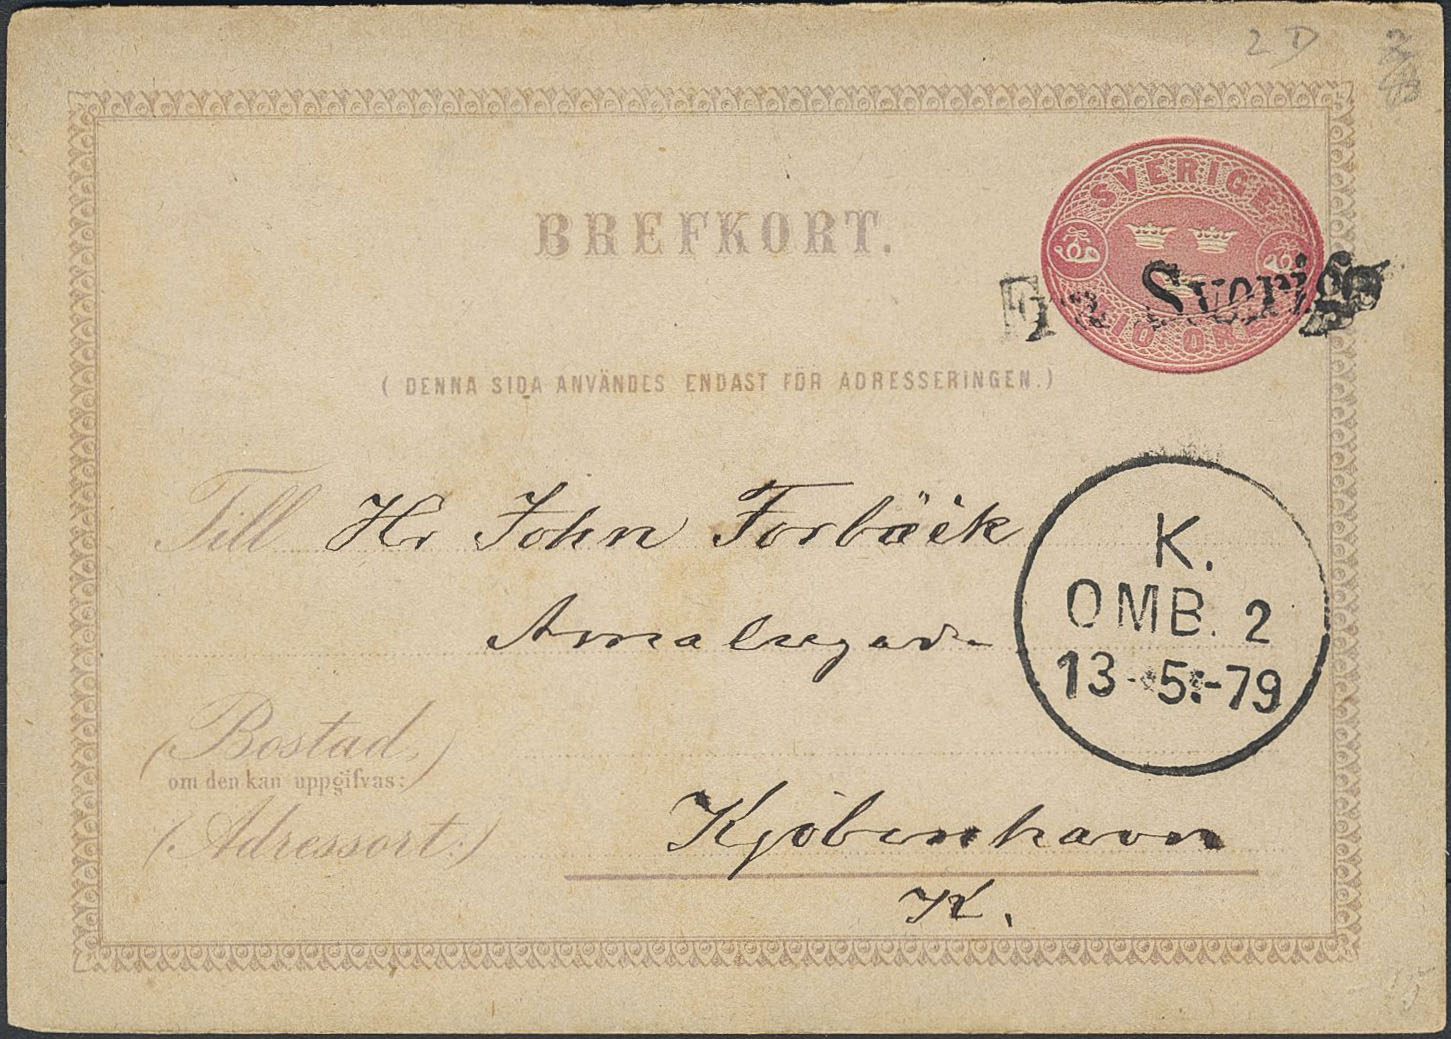 2 D
SVERIGE
TIO ÖRE
Fra Sverige
BREFKORT.
( DENNA SIDA ANVÄNDES ENDAST FÖR ADRESSERINGEN.)
Till Hr John Forbäik
Amaliegade
K.
OMB. 2
13-5-79
(Bostad,)
om den kan uppgifvas:
(Adressort:)
Kjöbenhavn
K.